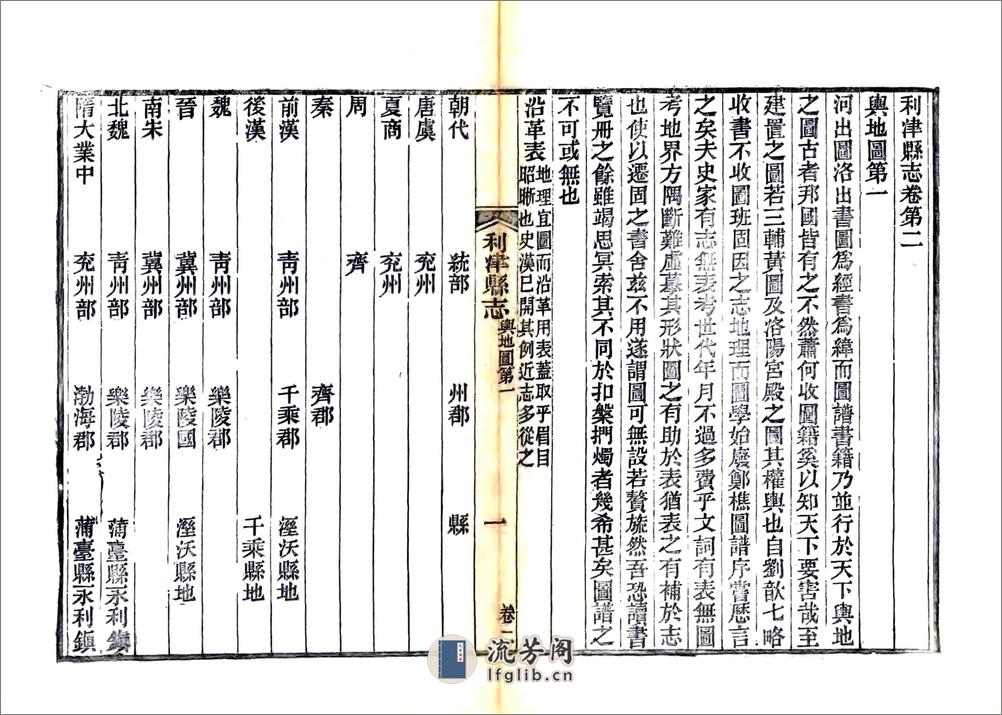 利津縣志卷第二
輿地圖第一
河出圖洛出書圖爲經書爲緯而圖譜書籍乃並行於天下輿地
之圖古者邦國皆有之不然蕭何收圖籍奚以知天下要害哉至
建置之圖若三輔黃圖及洛陽宮殿之圖其權輿也自劉歆七略
收書不收圖班固因之志地理而圖學始廢鄭樵圖譜序嘗歷言
之矣夫史家有志無表考世代年月不過多費乎文詞有表無圖
考地界方隅斷難虛摹其形狀圖之有助於表猶表之有補於志
也使以遷固之書舍兹不用遂謂圖可無設若贅旒然吾恐讀書
覽冊之餘雖竭思冥索其不同於扣槃捫燭者幾希甚矣圖譜之
不可或無也
沿革表
地理宜圖而沿革用表蓋取乎眉目
昭晰也史漢已開其例近志多從之
利津縣志 輿地圖第一 一 卷二
朝代 統部 州郡 縣
唐虞 兖州
夏商 兖州
周 齊
秦 齊郡
前漢 青州部 千乘郡 溼沃縣地
後漢 千乘縣地
魏 青州部 樂陵郡
晉 冀州部 樂陵國 溼沃縣地
南宋 冀州部 樂陵郡
北魏 青州部 樂陵郡 蒲臺縣永利鎮
隋大業中 兖州部 渤海郡 蒲臺縣永利鎮
流芳阁
lfglib.cn